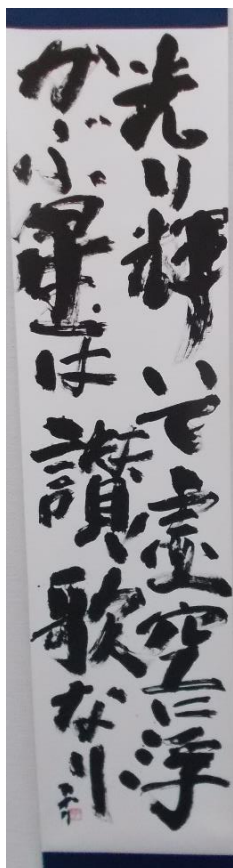 光り輝いて虚空に浮
かぶ星は讃歌なり